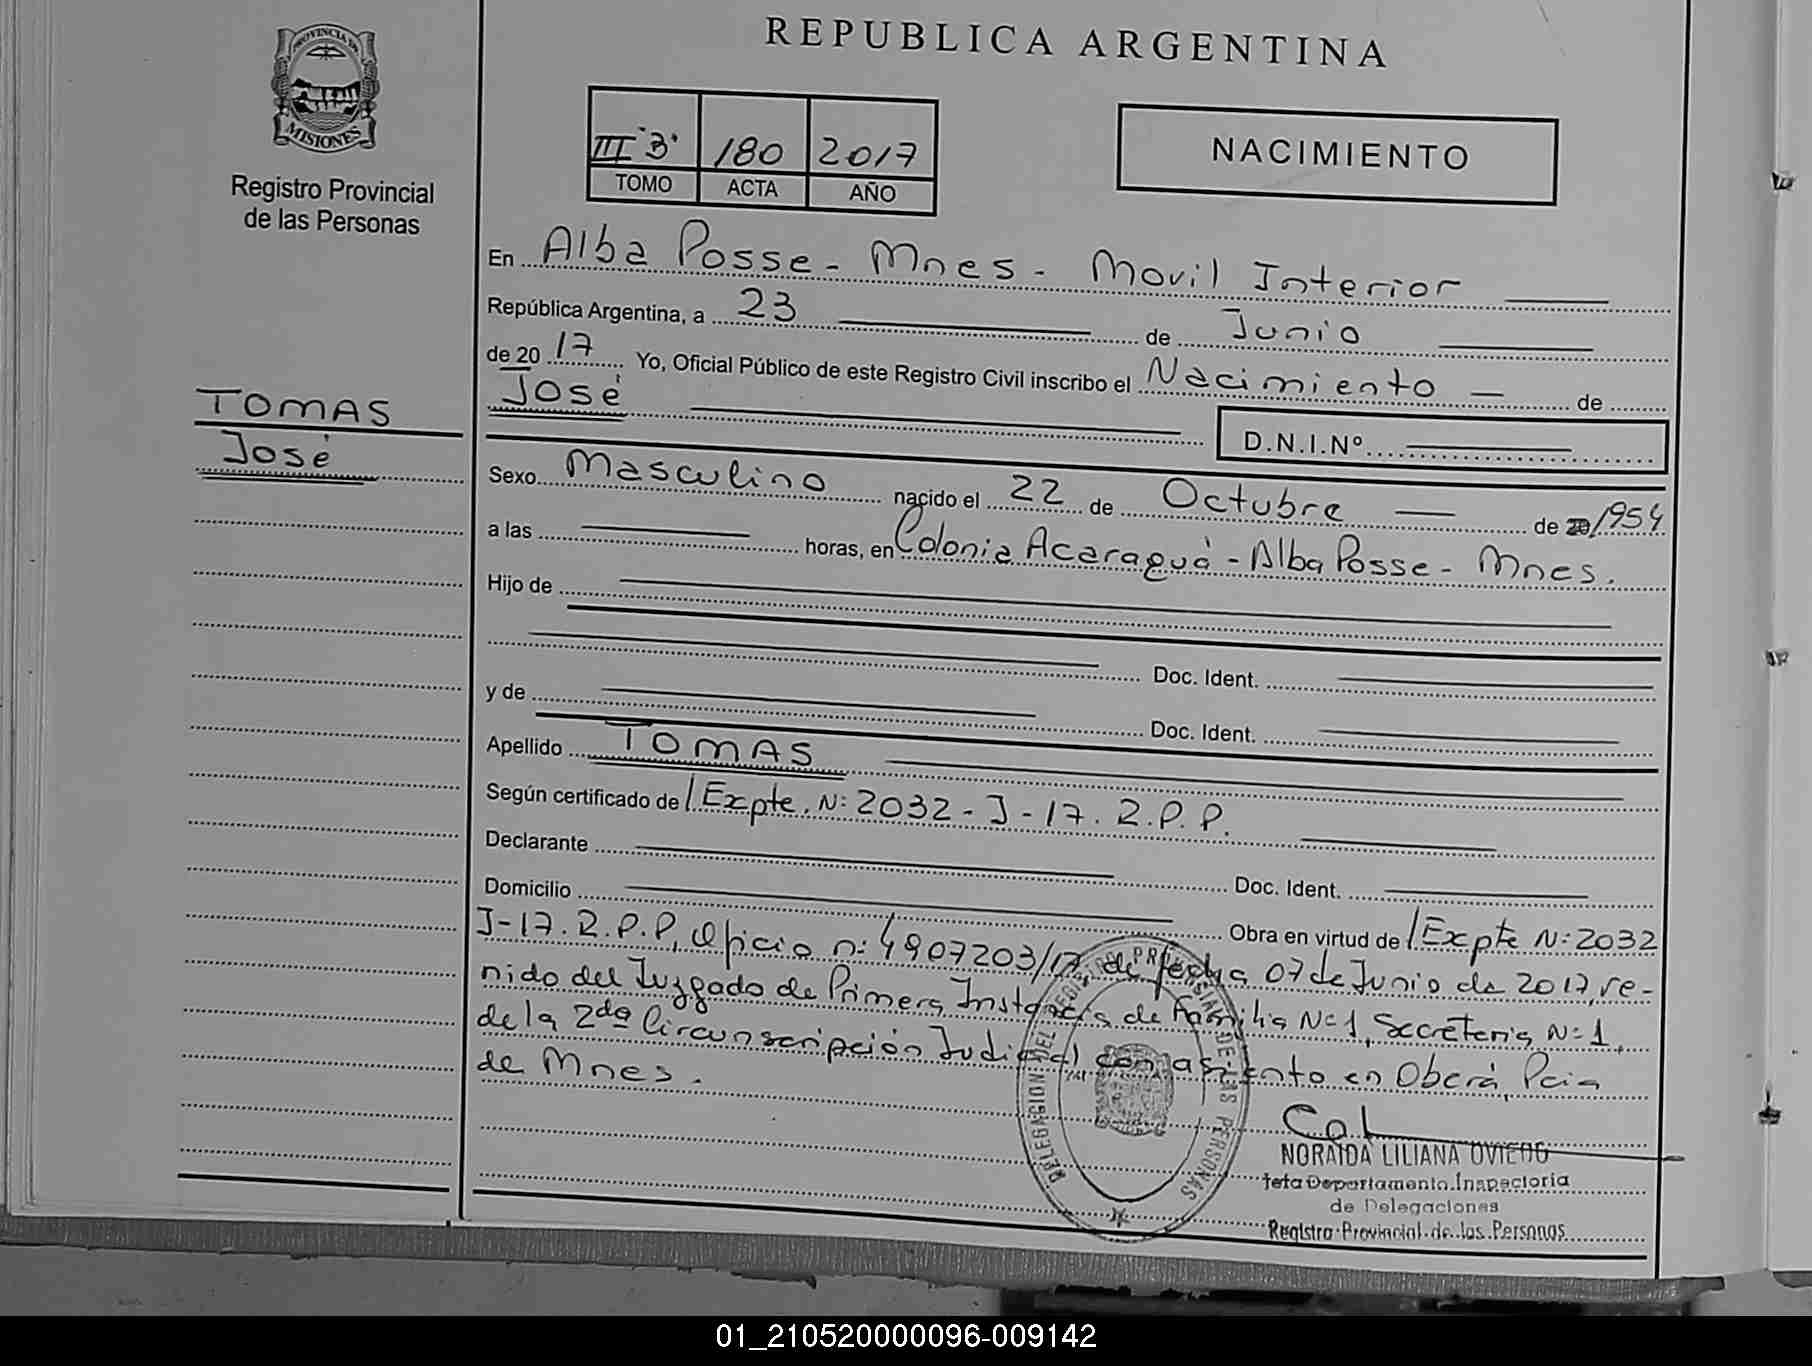 REPUBLICA ARGENTINA
PROVINCIA DE
MISIONES
Registro Provincial
de las Personas
III "B" 180 2017
TOMO ACTA AÑO
NACIMIENTO
En Alba Posse - Mnes - Movil Interior
República Argentina, a 23 de Junio
de 20 17 Yo, Oficial Público de este Registro Civil inscribo el Nacimiento de
José
D.N.I.Nº
TOMAS
José
Sexo Masculino nacido el 22 de Octubre de 20/1954
a las horas, en Colonia Acaraguá - Alba Posse - Mnes.
Hijo de
Doc. Ident.
y de
Doc. Ident.
Apellido TOMAS
Según certificado de / Expte. N: 2032 - J - 17. R.P.P.
Declarante
Doc. Ident.
Domicilio
Obra en virtud de / Expte N: 2032
J-17. R.P.P, Oficio n: 4907203/17 de fecha 07 de Junio de 2017, ve-
nido del Juzgado de Primera Instancia de Familia Nº 1, Secretería Nº 1,
de la 2da Circunscripción Judicial con asiento en Oberá, Pcia
de Mnes.
DELEGACION DEL REGISTRO PROVINCIAL DE LAS PERSONAS
NORAIDA LILIANA OVIEDO
Jefa Departamento Inspectoria
de Delegaciones
Registro Provincial de las Personas
01_210520000096-009142